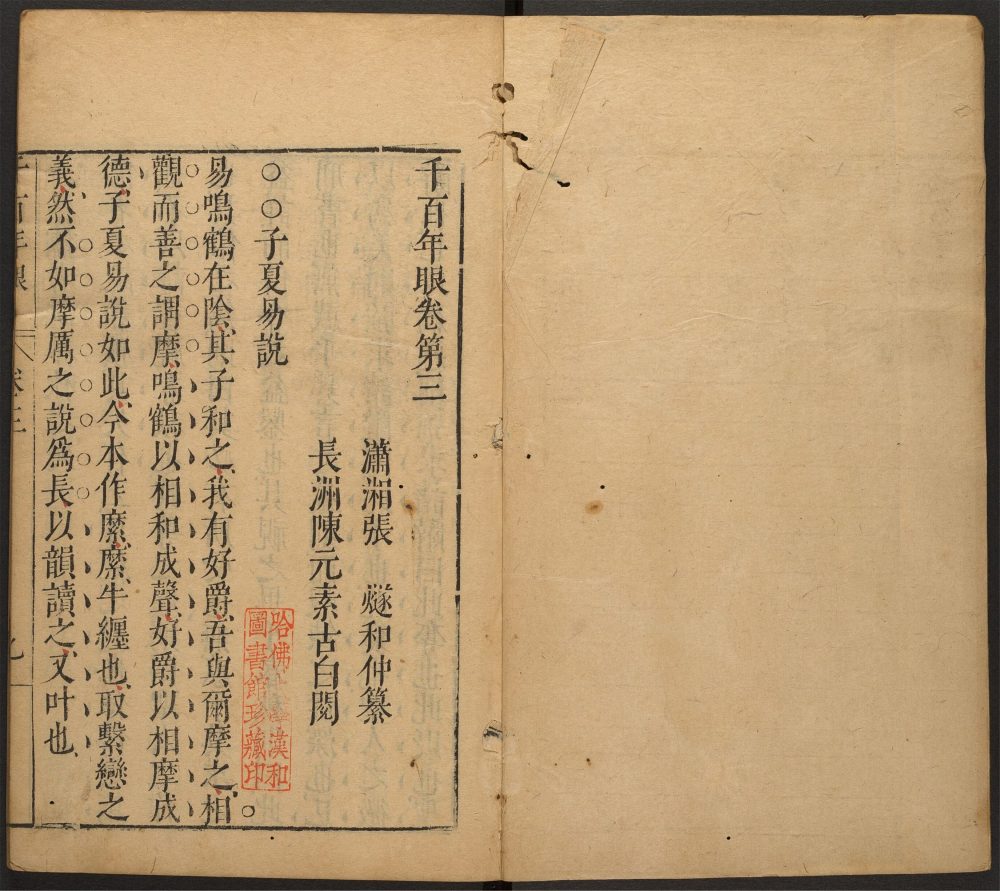 千百年眼卷第三
瀟湘張　燧和仲纂
長洲陳元素古白閱
○○子夏易說
易鳴鶴在陰其子和之我有好爵吾與爾摩之相
觀而善之謂摩鳴鶴以相和成聲好爵以相摩成
德子夏易說如此今本作縻縻牛纏也取繫戀之
義然不如摩厲之說爲長以韻讀之又叶也
千百年眼
卷三
哈佛大學漢和
圖書館珍藏印